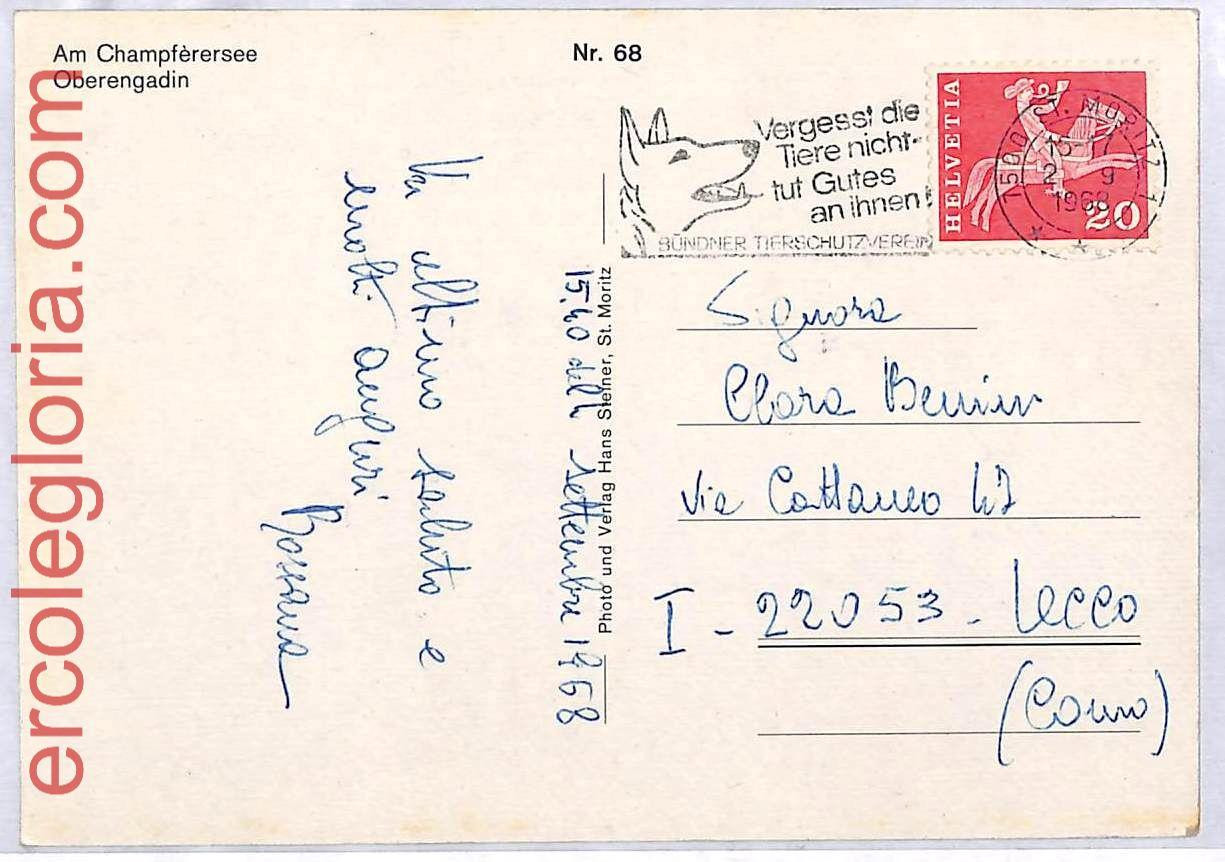 Am Champfèrersee
Oberengadin
Nr. 68
Vergesst die
Tiere nicht-
tut Gutes
an ihnen!
BÜNDNER TIERSCHUTZVEREIN
HELVETIA
20
7500 ST. MORITZ 1
2 9
1968
15.40 dell settembre 1968
Un ultimo saluto e
molti auguri
Rossana
Photo und Verlag Hans Steiner, St. Moritz
Signora
Clara
Via Cattaneo 47
I - 22053 - Lecco
(Como)
ercolegloria.com